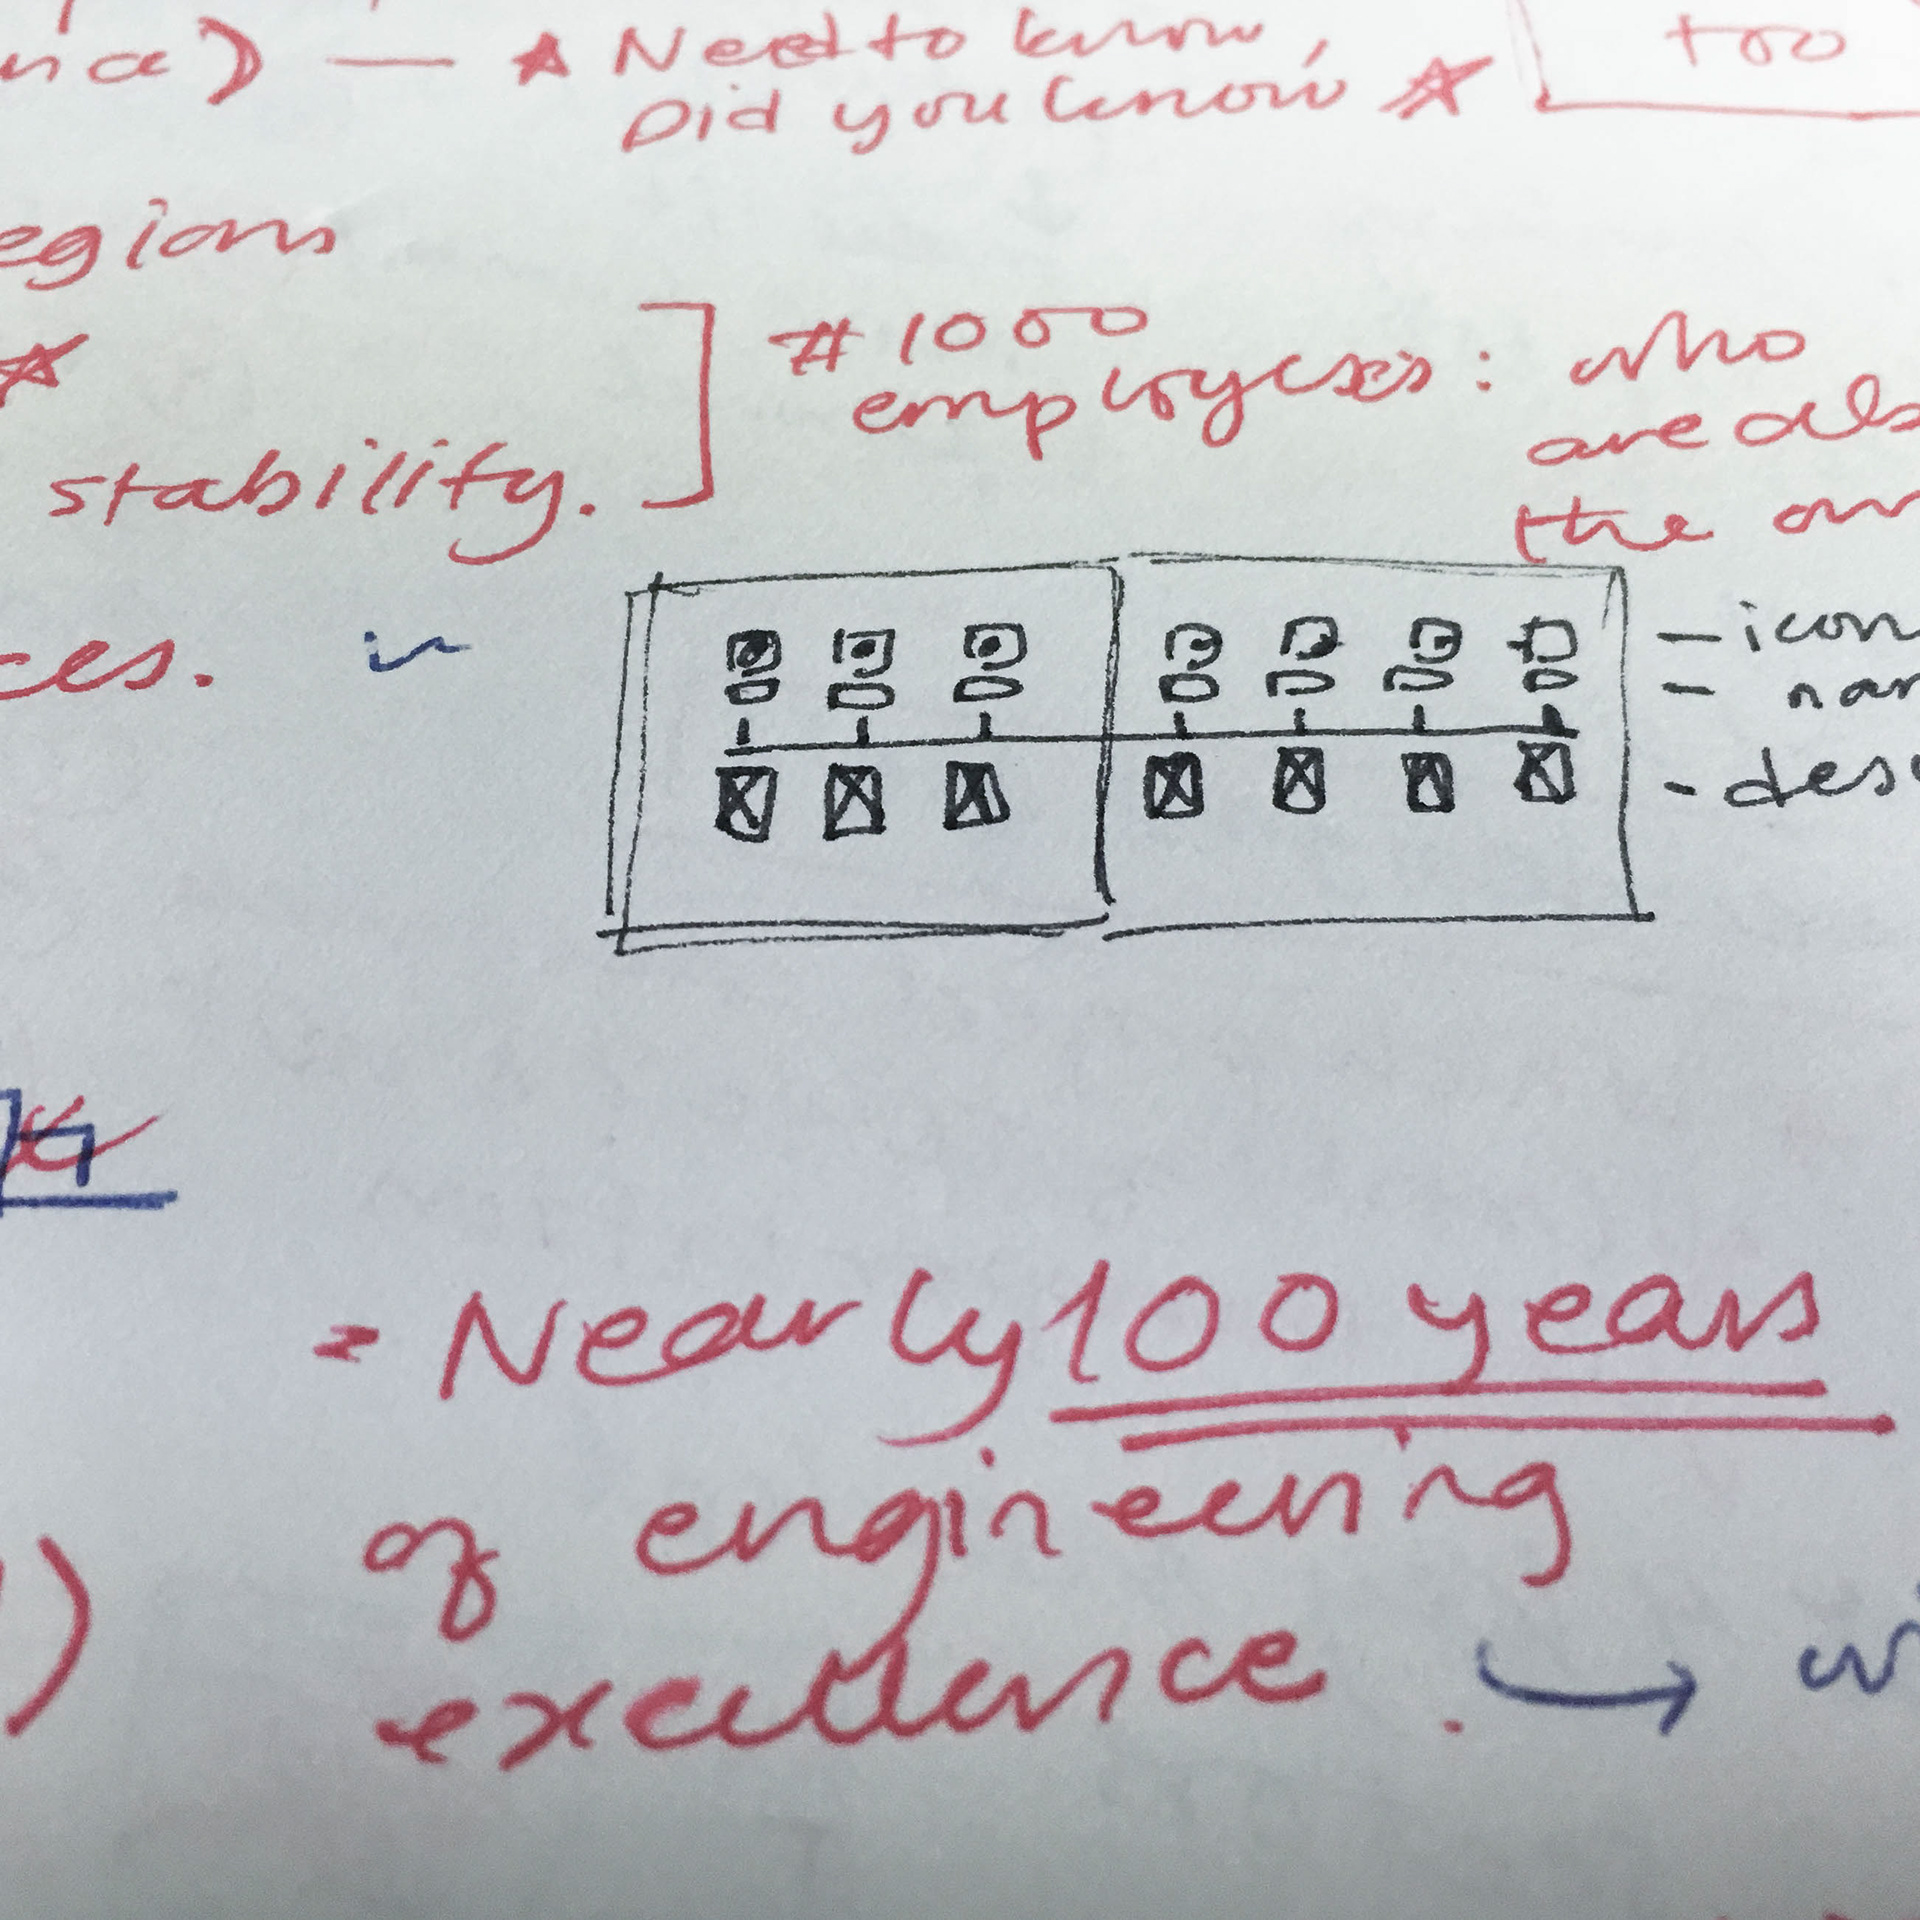 na) — ★ Need to know,
Did you know ★
too
egions
★
# 1000
employees: who
are als
the ow
stability.
ces. in
- icon
- nam
- des
- Nearly 100 years
of engineering
excellence. → wi